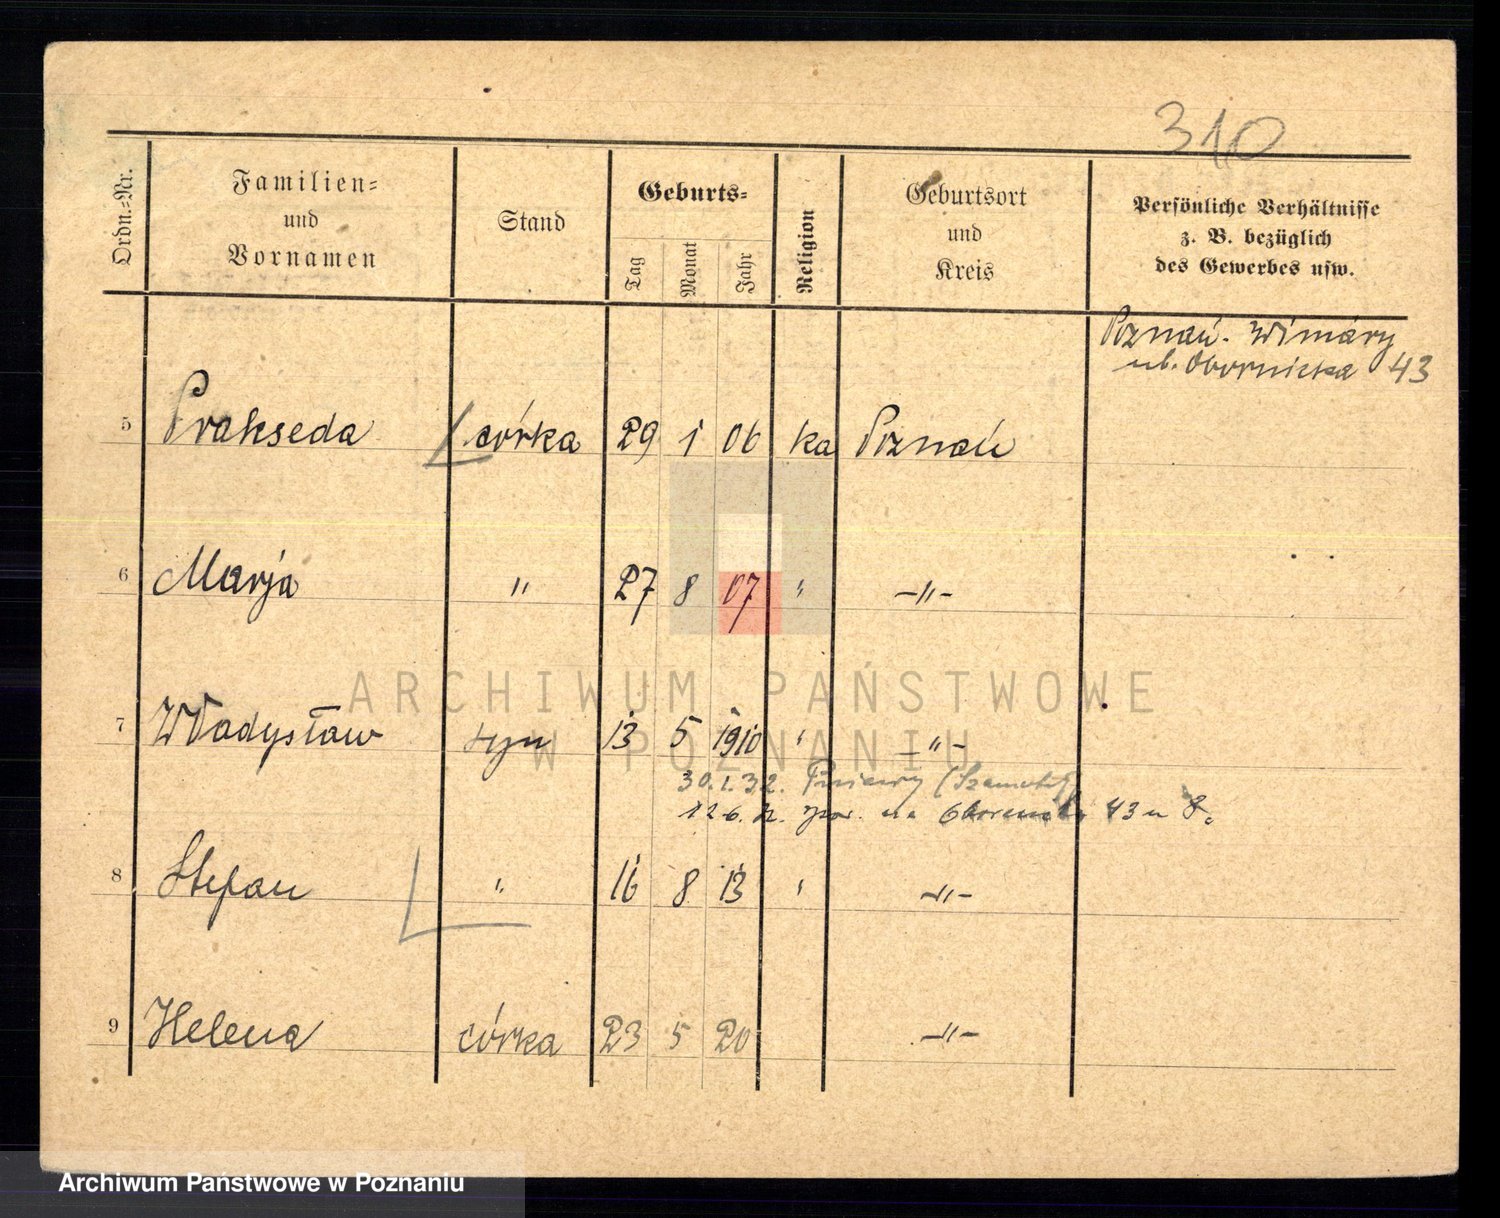 310
Ordn.-Nr.
Familien-
und
Vornamen
Stand
Geburts-
Tag
Monat
Jahr
Religion
Geburtsort
und
Kreis
Persönliche Verhältnisse
z. B. bezüglich
des Gewerbes usw.
Poznań. Winiary
ul. Obornicka 43
5 Prakseda córka 29 1 06 ka Poznań
6 Marja " 27 8 07 " -"-
ARCHIWUM PAŃSTWOWE
W POZNANIU
7 Władysław syn 13 5 1910 " -"-
30.1.32. Pniewy (Szamotuły)
12.6. 43 8.
8 Stefan " 16 8 13 " -"-
9 Helena córka 23 5 20 -"-
Archiwum Państwowe w Poznaniu